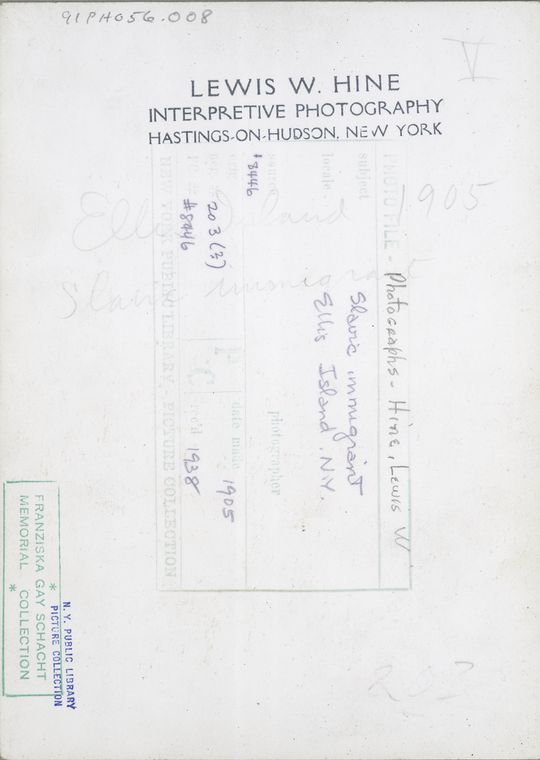 91PH056.008
V
LEWIS W. HINE
INTERPRETIVE PHOTOGRAPHY
HASTINGS-ON-HUDSON, NEW YORK
1905
Ellis Island
Slavic immigrant
PHOTO FILE - Photographs - Hine, Lewis W
subject Slavic immigrant
locale Ellis Island N.Y.
source photographer
#8446
neg. # 203(?) date made 1905
#8446 rec'd 1938
P.C
NEW YORK PUBLIC LIBRARY, - PICTURE COLLECTION
FRANZISKA GAY SCHACHT
* MEMORIAL COLLECTION *
N. Y. PUBLIC LIBRARY
PICTURE COLLECTION